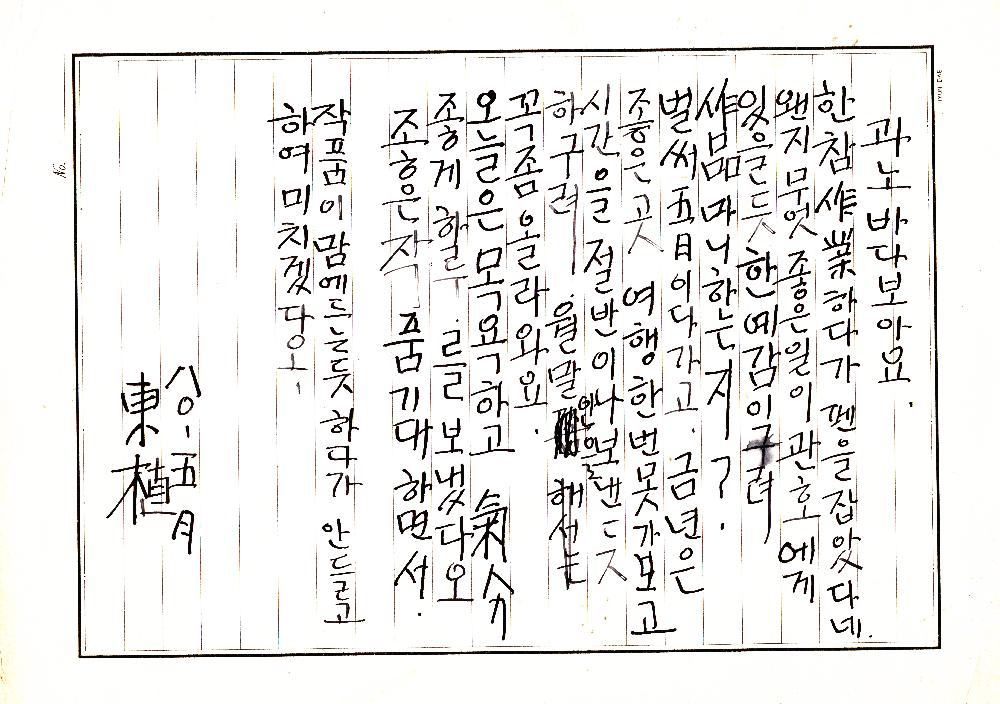 과노 바다보아요.
한참 作業하다가 펜을 잡았다네.
왠지 무엇 좋은일이 관호에게
있을듯 한예감이구려
作品마니하는지?.
벌써 五日이다가고. 금년은
조흔곳 여행한번못가보고
시간을 절반이나보낸듯
하구려. 월말 해서는
꼭좀올라와요.
오늘은목욕하고 氣分
좋게 하루를보냈다오
조흔작품기대하면서.
작품이맘에드는듯하다가 안들고
하여미치겠당오.
八○.五月
東植
No.